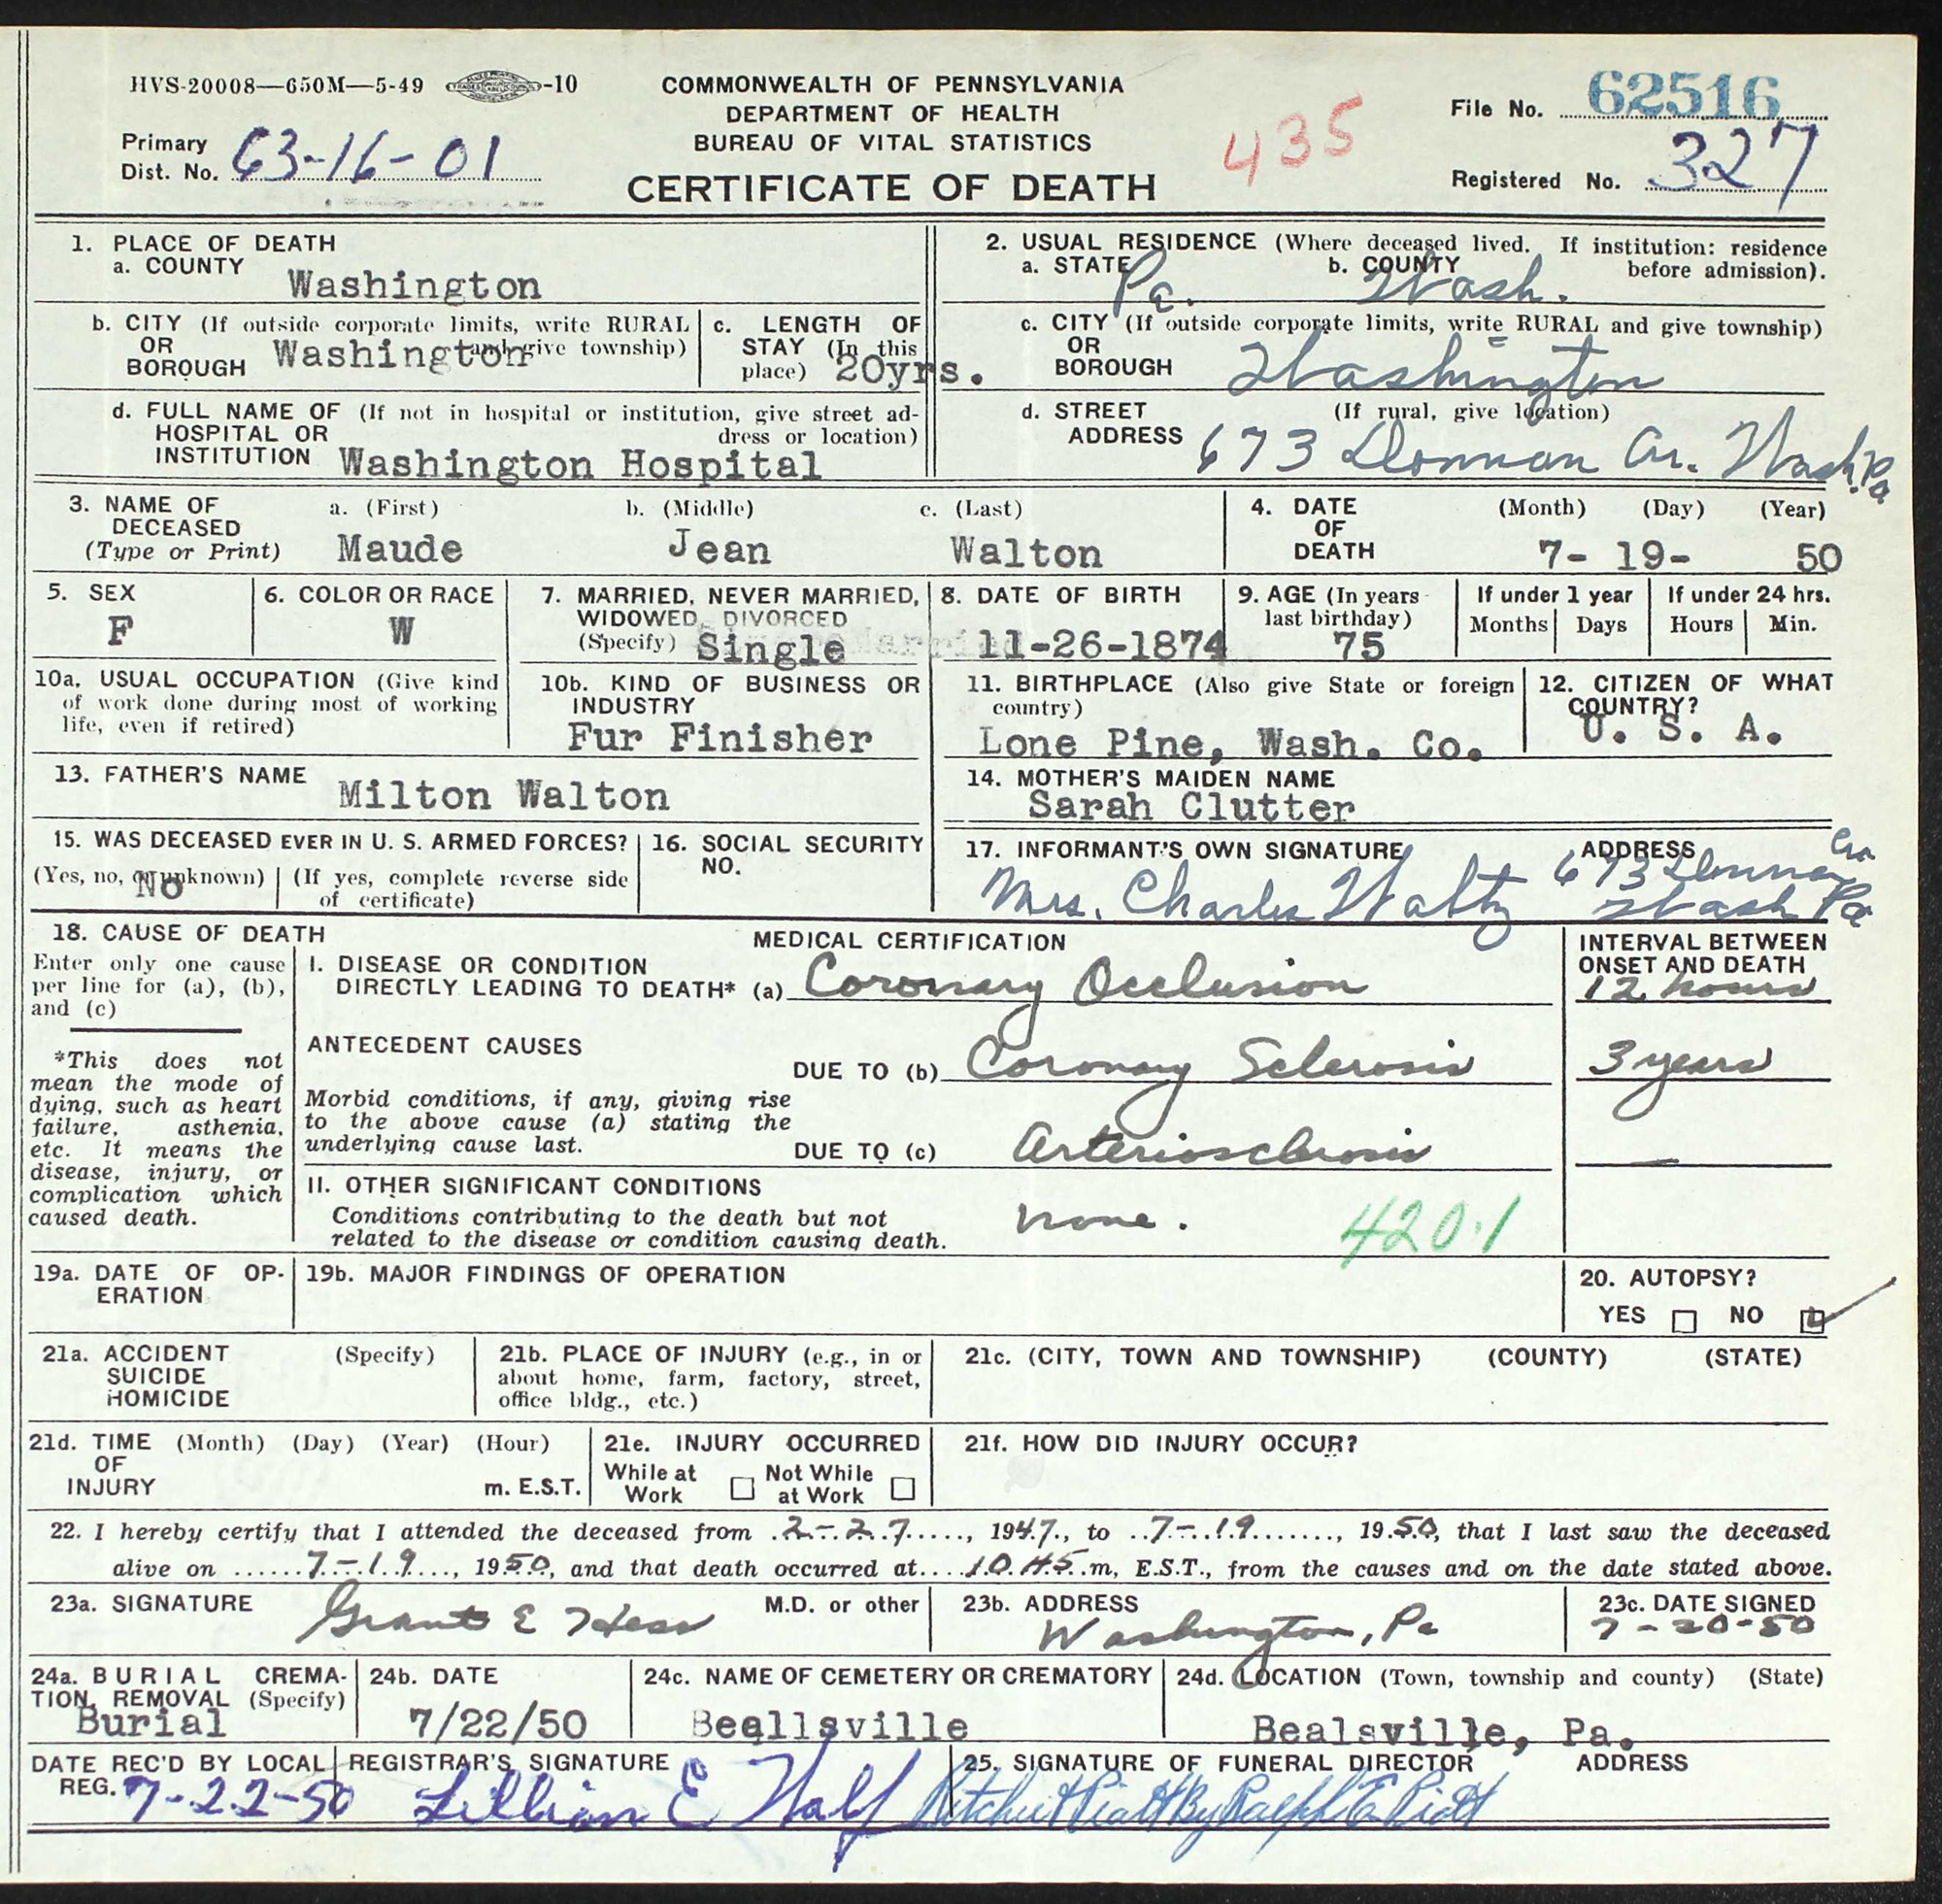 HVS-20008—650M—5-49 -10
COMMONWEALTH OF PENNSYLVANIA
DEPARTMENT OF HEALTH
BUREAU OF VITAL STATISTICS
CERTIFICATE OF DEATH
435
File No. 62516
Primary
Dist. No. 63-16-01
Registered No. 327
1. PLACE OF DEATH
a. COUNTY
Washington
2. USUAL RESIDENCE (Where deceased lived. If institution: residence
before admission).
a. STATE Pa. b. COUNTY Wash.
b. CITY (If outside corporate limits, write RURAL
OR and give township)
BOROUGH Washington
c. LENGTH OF
STAY (In this
place) 20yrs.
c. CITY (If outside corporate limits, write RURAL and give township)
OR
BOROUGH Washington
d. FULL NAME OF (If not in hospital or institution, give street ad-
HOSPITAL OR dress or location)
INSTITUTION Washington Hospital
d. STREET (If rural, give location)
ADDRESS 673 Donnan Av. Wash. Pa
3. NAME OF
DECEASED
(Type or Print)
a. (First) b. (Middle) c. (Last)
Maude Jean Walton
4. DATE
OF
DEATH
(Month) (Day) (Year)
7- 19- 50
5. SEX
F
6. COLOR OR RACE
W
7. MARRIED, NEVER MARRIED,
WIDOWED, DIVORCED
(Specify) Single
8. DATE OF BIRTH
11-26-1874
9. AGE (In years
last birthday)
75
If under 1 year
Months Days
If under 24 hrs.
Hours Min.
10a. USUAL OCCUPATION (Give kind
of work done during most of working
life, even if retired)
10b. KIND OF BUSINESS OR
INDUSTRY
Fur Finisher
11. BIRTHPLACE (Also give State or foreign
country)
Lone Pine, Wash. Co.
12. CITIZEN OF WHAT
COUNTRY?
U. S. A.
13. FATHER'S NAME
Milton Walton
14. MOTHER'S MAIDEN NAME
Sarah Clutter
15. WAS DECEASED EVER IN U. S. ARMED FORCES?
(Yes, no, or unknown) (If yes, complete reverse side
of certificate)
No
16. SOCIAL SECURITY
NO.
17. INFORMANT'S OWN SIGNATURE ADDRESS
Mrs. Charles Waltz 673 Donnan Av
Wash Pa
18. CAUSE OF DEATH
Enter only one cause
per line for (a), (b),
and (c)
*This does not
mean the mode of
dying, such as heart
failure, asthenia,
etc. It means the
disease, injury, or
complication which
caused death.
MEDICAL CERTIFICATION
I. DISEASE OR CONDITION
DIRECTLY LEADING TO DEATH* (a) Coronary Occlusion
INTERVAL BETWEEN
ONSET AND DEATH
12 hours
ANTECEDENT CAUSES
DUE TO (b) Coronary Sclerosis
3 years
Morbid conditions, if any, giving rise
to the above cause (a) stating the
underlying cause last.
DUE TO (c) Arteriosclerosis
—
II. OTHER SIGNIFICANT CONDITIONS
Conditions contributing to the death but not
related to the disease or condition causing death.
none.
420.1
19a. DATE OF OP-
ERATION
19b. MAJOR FINDINGS OF OPERATION
20. AUTOPSY?
YES NO
21a. ACCIDENT (Specify)
SUICIDE
HOMICIDE
21b. PLACE OF INJURY (e.g., in or
about home, farm, factory, street,
office bldg., etc.)
21c. (CITY, TOWN AND TOWNSHIP) (COUNTY) (STATE)
21d. TIME (Month) (Day) (Year) (Hour)
OF
INJURY m. E.S.T.
21e. INJURY OCCURRED
While at Not While
Work at Work
21f. HOW DID INJURY OCCUR?
22. I hereby certify that I attended the deceased from 2-27, 1947, to 7-19, 1950, that I last saw the deceased
alive on 7-19, 1950, and that death occurred at 10.45 m, E.S.T., from the causes and on the date stated above.
23a. SIGNATURE M.D. or other
Grant E Hess
23b. ADDRESS
Washington, Pa
23c. DATE SIGNED
7-20-50
24a. BURIAL CREMA-
TION, REMOVAL (Specify)
Burial
24b. DATE
7/22/50
24c. NAME OF CEMETERY OR CREMATORY
Beallsville
24d. LOCATION (Town, township and county) (State)
Bealsville, Pa.
DATE REC'D BY LOCAL
REG. 7-22-50
REGISTRAR'S SIGNATURE
Lillian E
25. SIGNATURE OF FUNERAL DIRECTOR ADDRESS
Ritchie & Piatt By Ralph E. Piatt